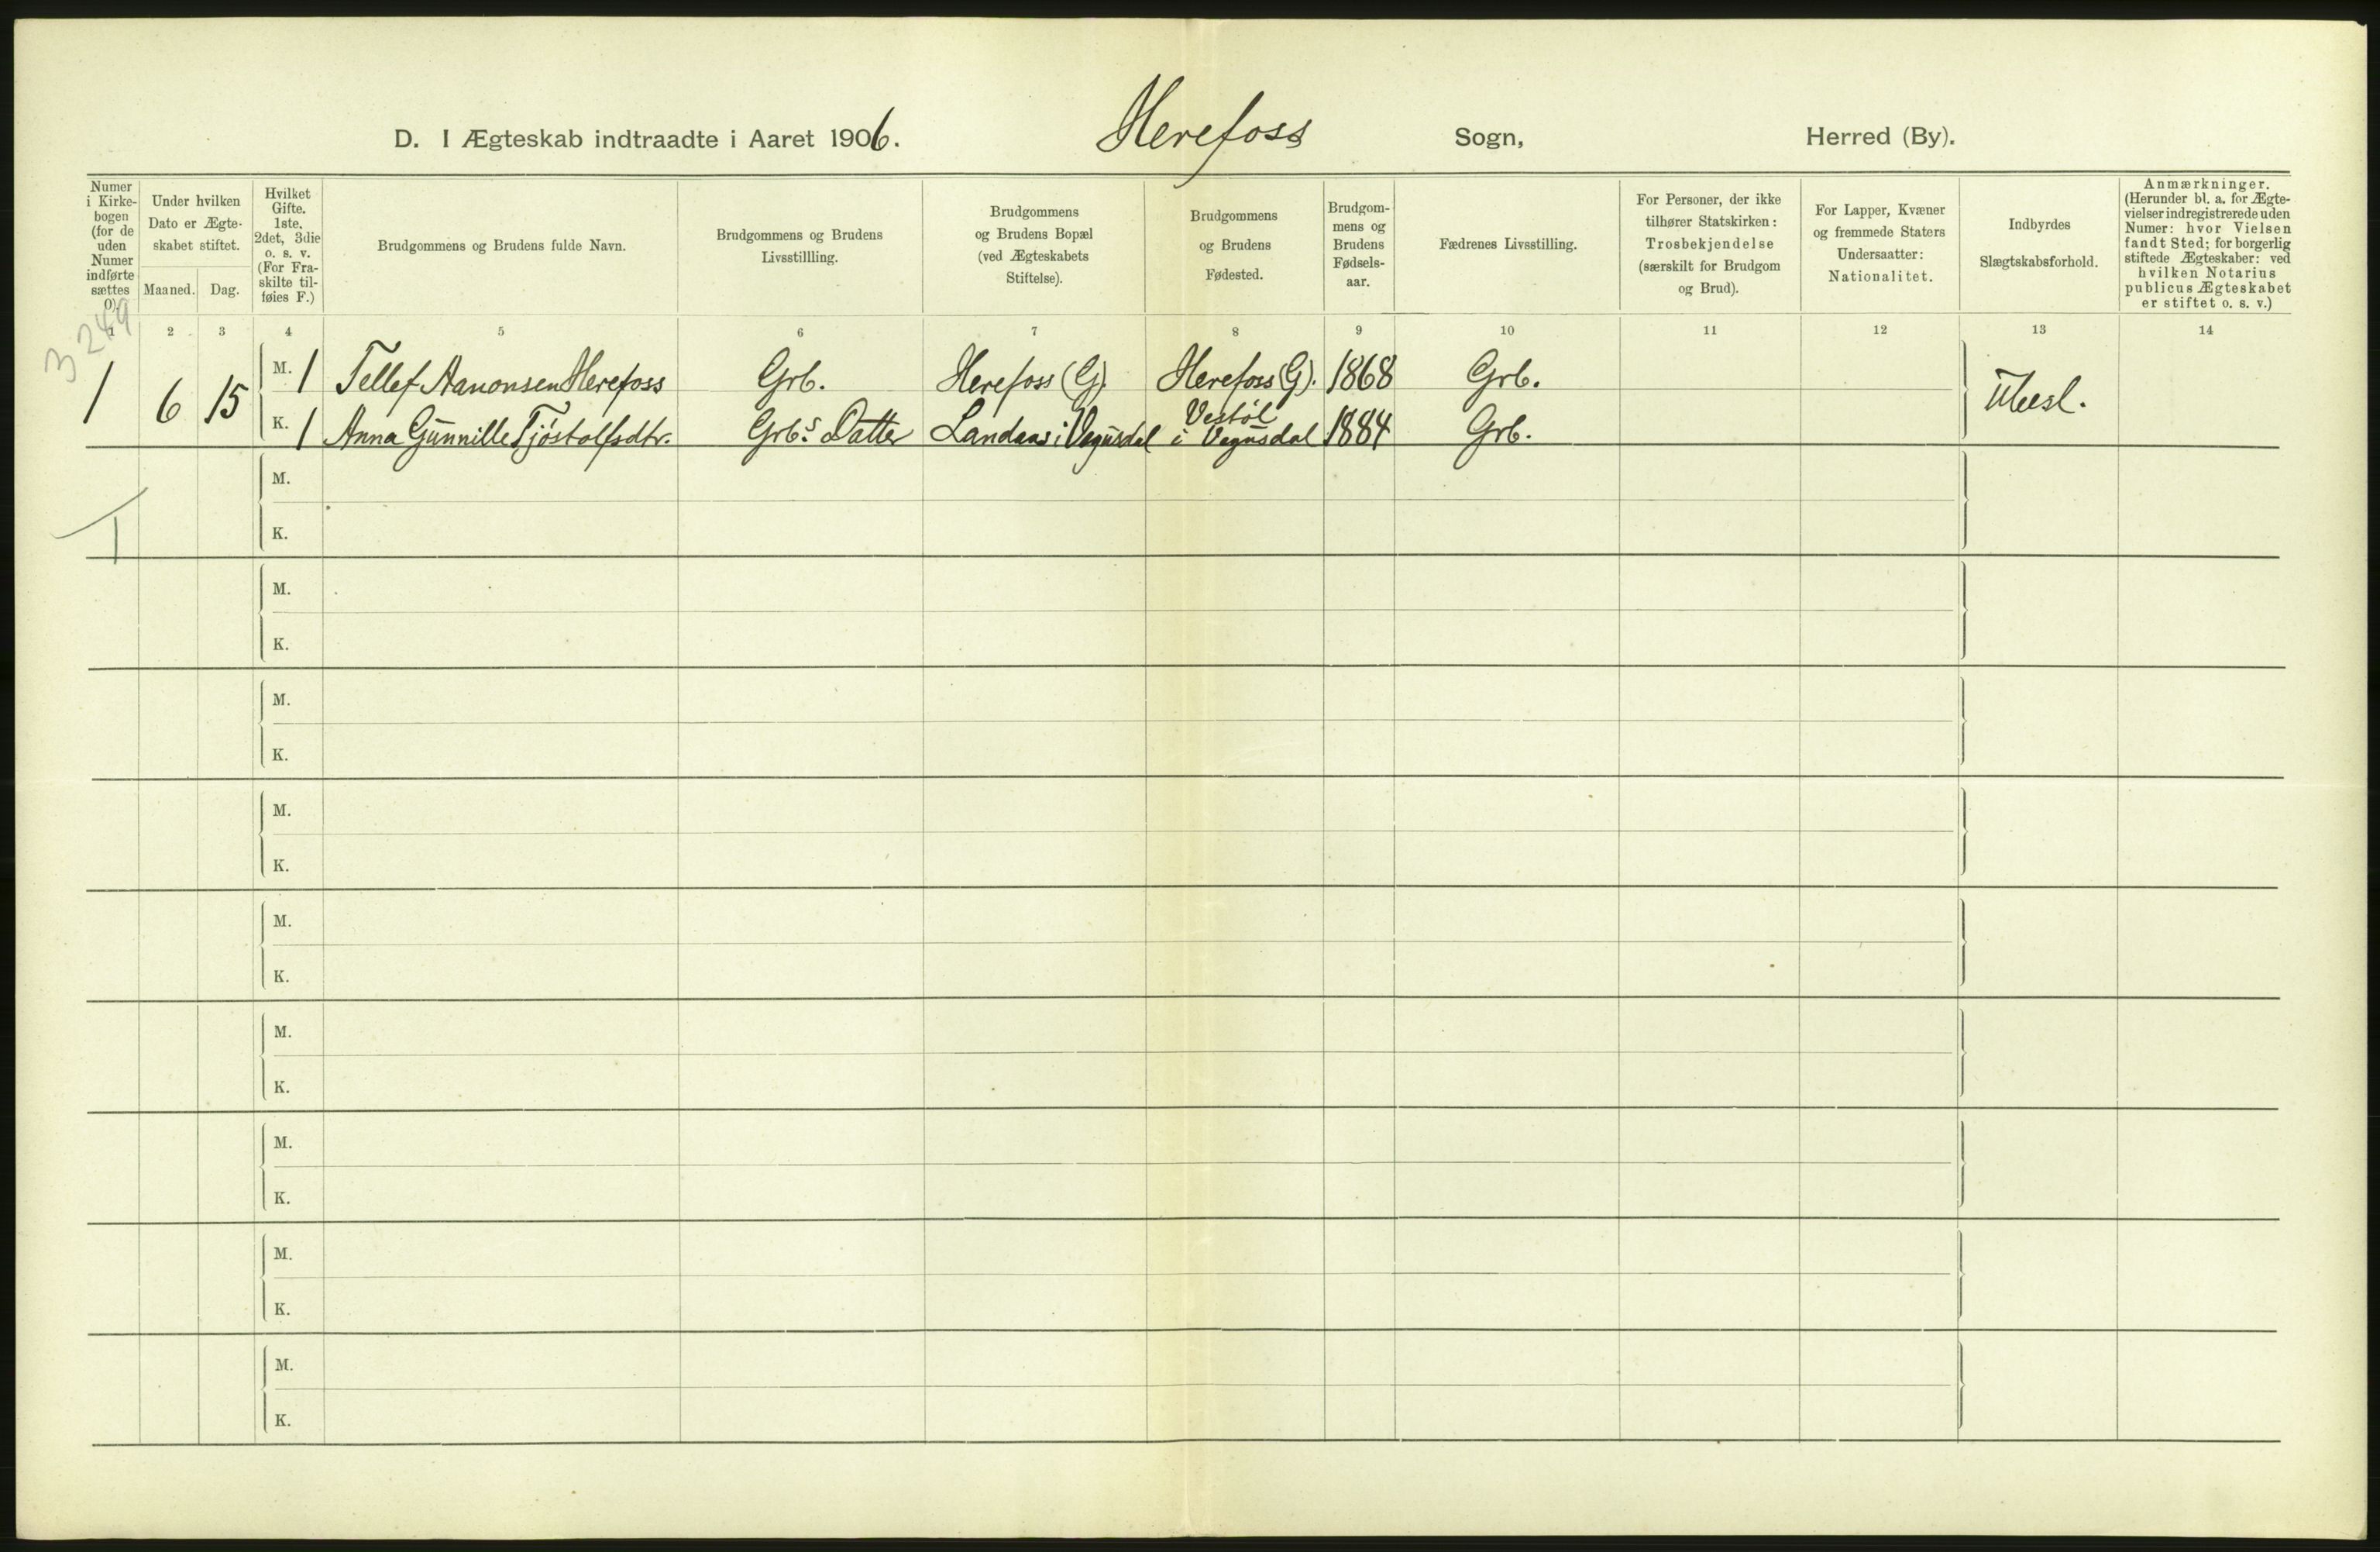 D. I Ægteskab indtraadte i Aaret 1906. Herefoss Sogn, Herred (By).
Numer i Kirkebogen (for de uden Numer indførte sættes 0).
Under hvilken Dato er Ægteskabet stiftet.
Maaned. Dag.
Hvilket Gifte. 1ste, 2det, 3die o. s. v. (For Fraskilte tilføies F.)
Brudgommens og Brudens fulde Navn.
Brudgommens og Brudens Livsstillling.
Brudgommens og Brudens Bopæl (ved Ægteskabets Stiftelse).
Brudgommens og Brudens Fødested.
Brudgommens og Brudens Fødselsaar.
Fædrenes Livsstilling.
For Personer, der ikke tilhører Statskirken: Trosbekjendelse (særskilt for Brudgom og Brud).
For Lapper, Kvæner og fremmede Staters Undersaatter: Nationalitet.
Indbyrdes Slægtskabsforhold.
Anmærkninger. (Herunder bl. a. for Ægtevielser indregistrerede uden Numer: hvor Vielsen fandt Sted; for borgerlig stiftede Ægteskaber: ved hvilken Notarius publicus Ægteskabet er stiftet o. s. v.)
3249
1 2 3 4 5 6 7 8 9 10 11 12 13 14
1 6 15 M. 1 Tellef Aanonsen Herefoss Grb. Herefoss (G). Herefoss (G). 1868 Grb. Ubesl.
K. 1 Anna Gunnille Tjöstolfsdtr. Grb.s Datter Landaas i Vegusdal Vestöl i Vegusdal 1884 Grb.
1
M.
K.
M.
K.
M.
K.
M.
K.
M.
K.
M.
K.
M.
K.
M.
K.
M.
K.